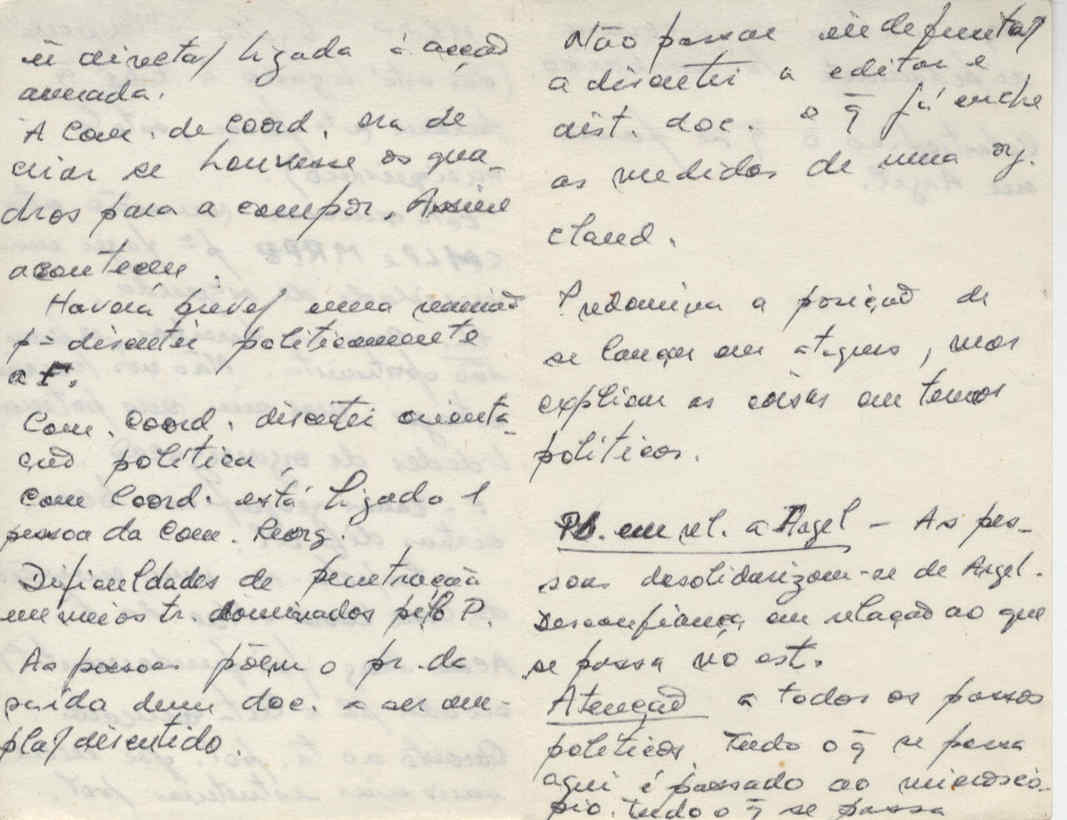 ñ directa/ ligada à acção
armada.
A Com. de Coord. era de
criar se houvesse os qua-
dros para a compor. Assim
aconteceu.
Haverá breve/ uma reunião
p= discutir politicamente
a F.
Com. Coord. discutir orienta-
ção política.
Com Coord. está ligada 1
pessoa da Com. Reorg.
Dificuldades de penetração
em meios tr. dominados pelo P.
As pessoas põem o pr. da
saída dum doc. a ser am-
pla/ discutido.
Não passar indefinita/
a discutir a editar e
dist. doc. o q̄ já enche
as medidas de uma org.
cland.
Predomina a posição de
se lançar em ataques, mas
explicar as coisas em termos
políticos.
Pb. em rel. a Argel - As pes-
soas desolidarizam-se de Argel.
Desconfiança em relação ao que
se passa no ext.
Atenção a todos os passos
políticos. Tudo o q̄ se passa
aqui é passado ao microscó-
pio. Tudo o q̄ se passa